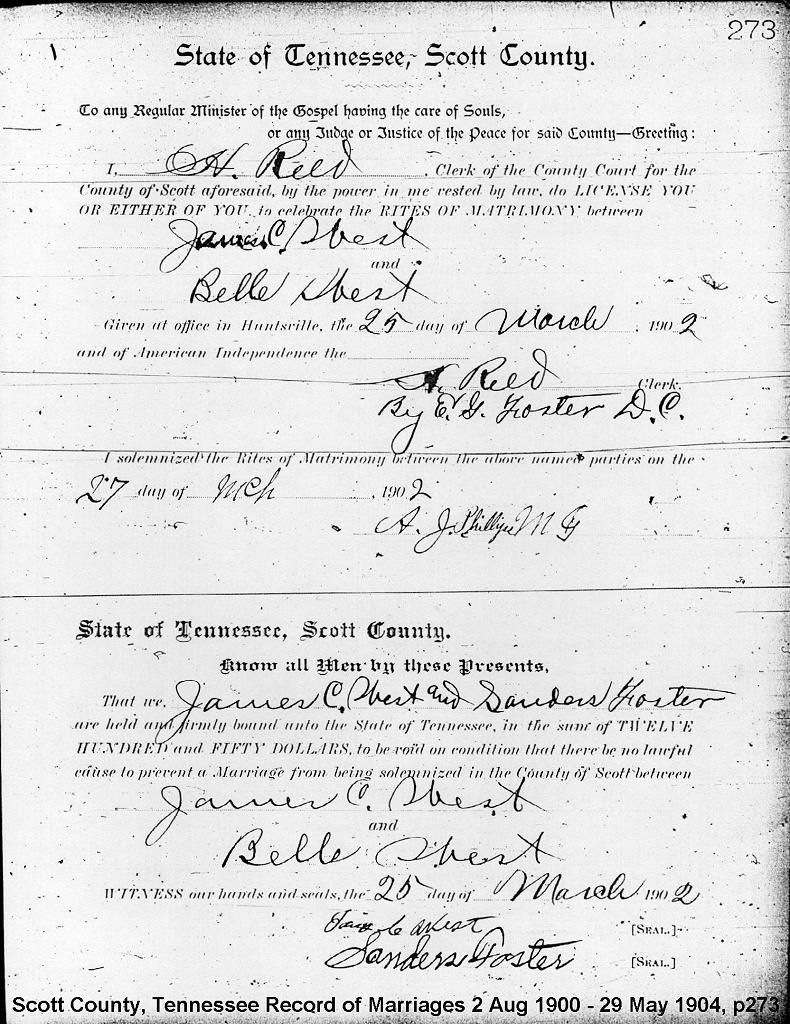 273
State of Tennessee, Scott County.
To any Regular Minister of the Gospel having the care of Souls,
or any Judge or Justice of the Peace for said County—Greeting:
I, H. Reed, Clerk of the County Court for the
County of Scott aforesaid, by the power in me vested by law, do LICENSE YOU
OR EITHER OF YOU, to celebrate the RITES OF MATRIMONY between
James C. West
and
Belle West
Given at office in Huntsville, the 25 day of March, 1902
and of American Independence the
H. Reed Clerk.
By E. G. Foster D.C.
I solemnized the Rites of Matrimony between the above named parties on the
27 day of Mch, 1902
A. J. Phillips M G
State of Tennessee, Scott County.
Know all Men by these Presents,
That we, James C. West and Sanders Foster
are held and firmly bound unto the State of Tennessee, in the sum of TWELVE
HUNDRED and FIFTY DOLLARS, to be void on condition that there be no lawful
cause to prevent a Marriage from being solemnized in the County of Scott between
James C. West
and
Belle West
WITNESS our hands and seals, the 25 day of March 1902
C West [SEAL.]
Sanders Foster [SEAL.]
Scott County, Tennessee Record of Marriages 2 Aug 1900 - 29 May 1904, p273